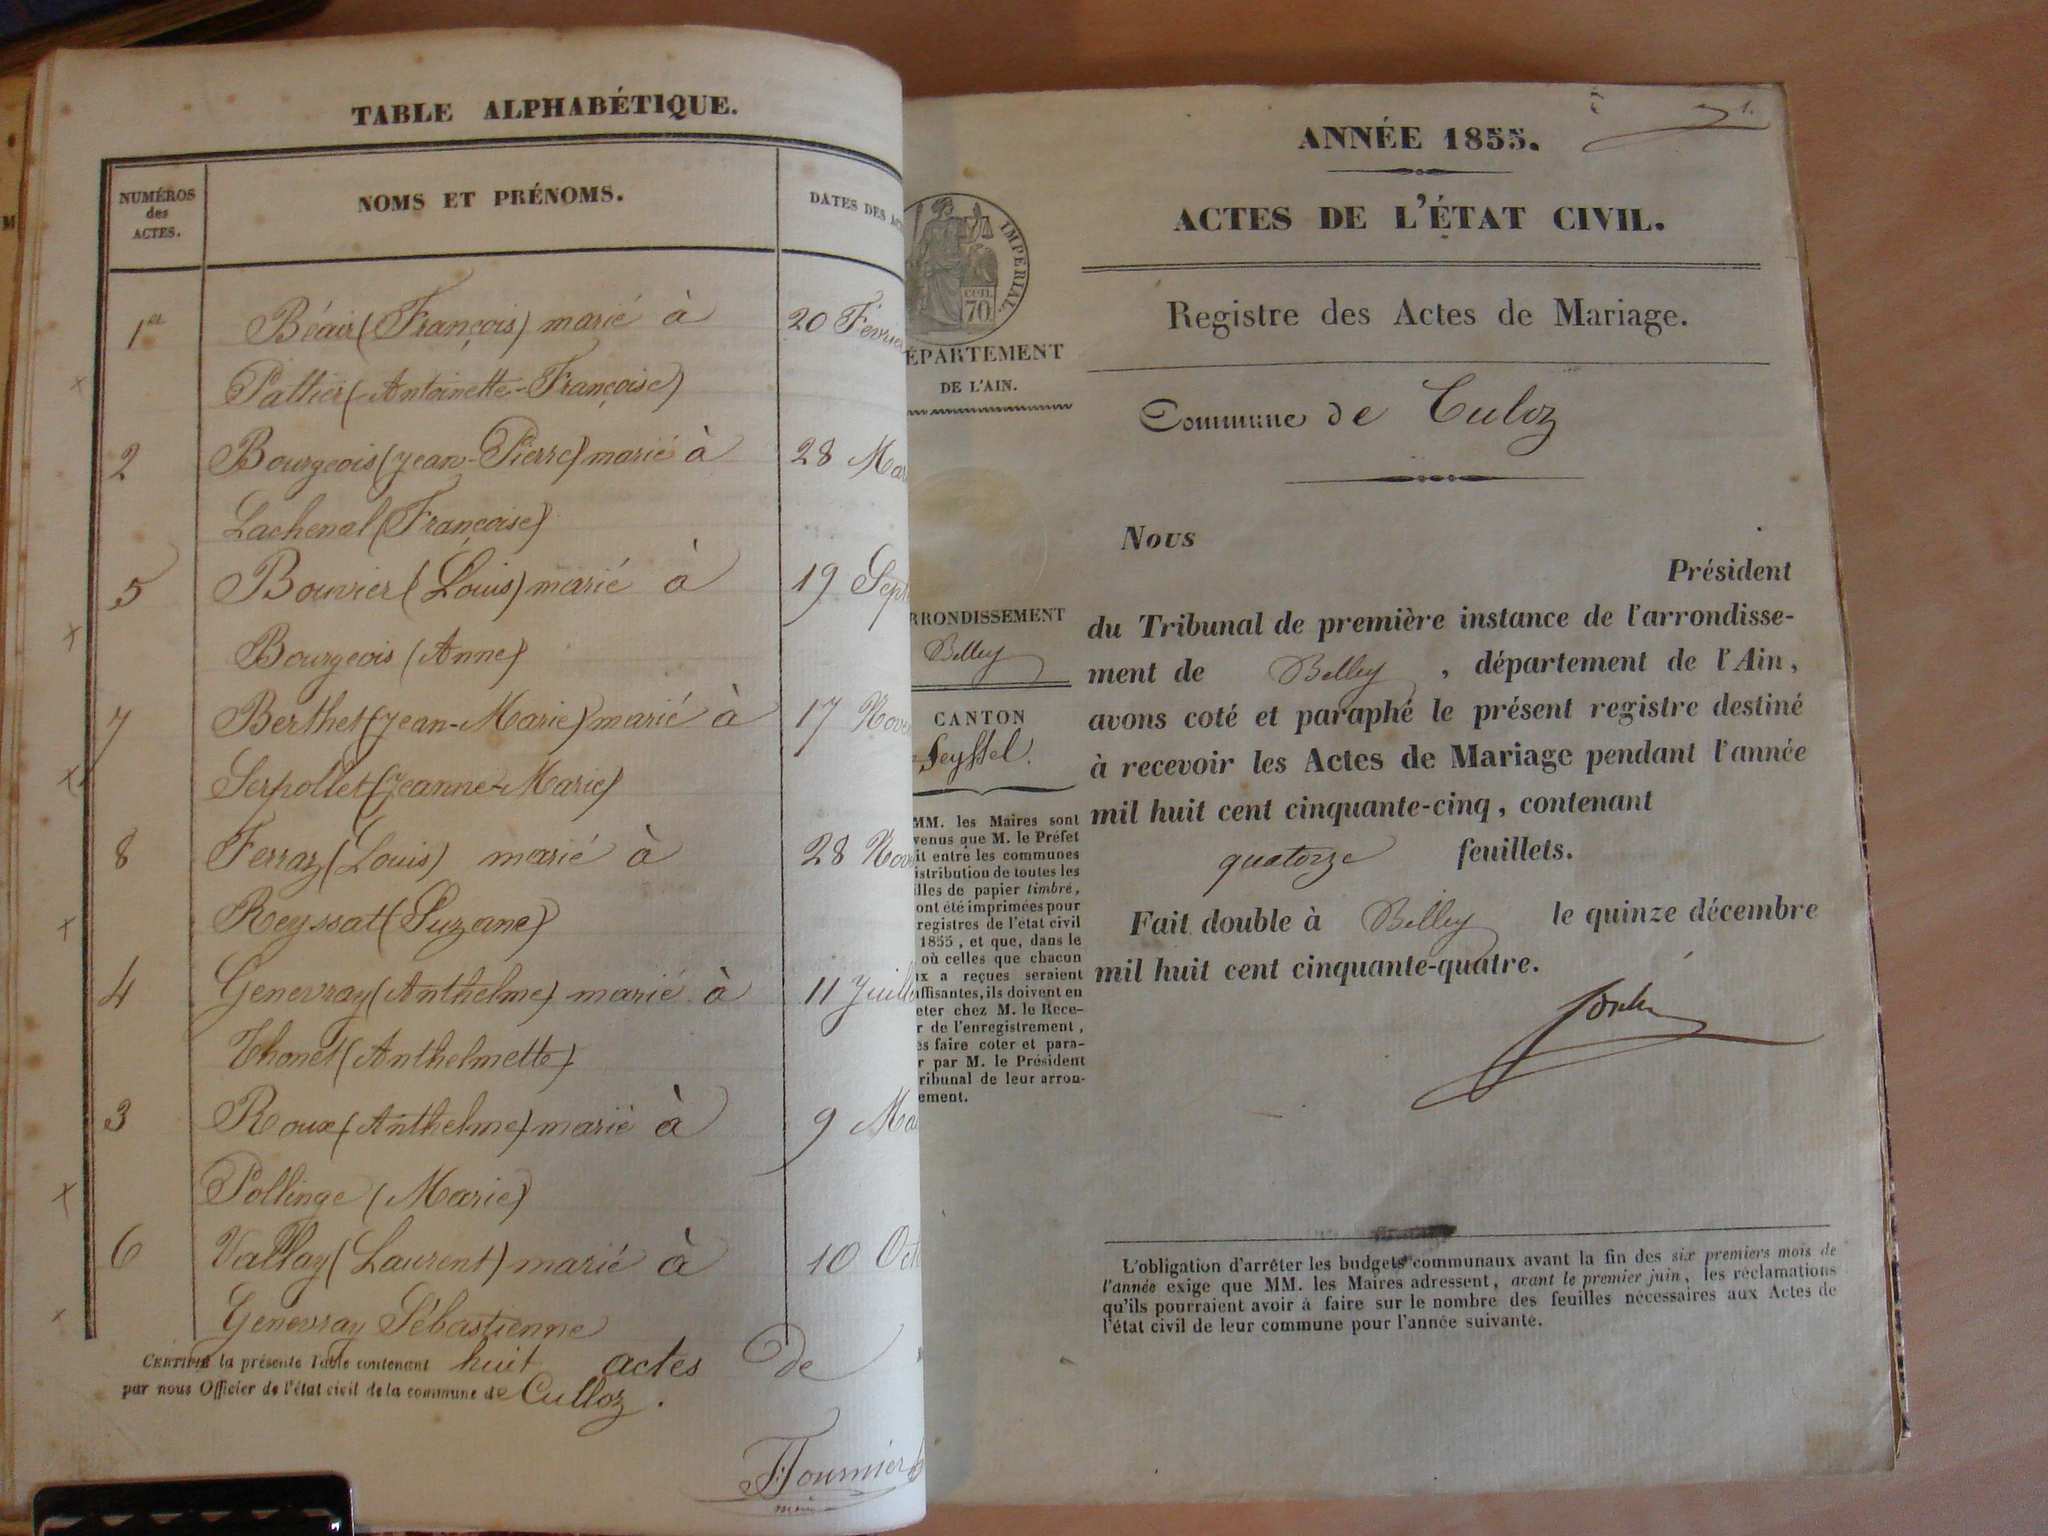 TABLE ALPHABÉTIQUE.
NUMÉROS
des
ACTES.
NOMS ET PRÉNOMS.
DATES DES AC
1er Béair (François) marié à 20 Févrie
Pattier (Antoinette-Françoise)
2 Bourgeois (Jean-Pierre) marié à 28 Mar
Lachenal (Françoise)
5 Bouvier (Louis) marié à 19 Sept
Bourgeois (Anne)
7 Berthet (Jean-Marie) marié à 17 Nove
Serpollet (Jeanne-Marie)
8 Ferraz (Louis) marié à 28 Nov
Reyssat (Suzane)
4 Genevray (Anthelme) marié à 11 Juill
Thonet (Anthelmette)
3 Roux (Anthelme) marié à 9 Ma
Pollinge (Marie)
6 Vallay (Laurent) marié à 10 Oct
Genevray Sébastienne
CERTIFIÉ la présente Table contenant huit actes de
par nous Officier de l'état civil de la commune de Culloz.
Fournier
maire
1.
ANNÉE 1855.
ACTES DE L'ÉTAT CIVIL.
IMPERIAL.
CEN.
70
ÉPARTEMENT
DE L'AIN.
RRONDISSEMENT
Belley
CANTON
Seyssel.
MM. les Maires sont
venus que M. le Préfet
it entre les communes
istribution de toutes les
illes de papier timbré,
ont été imprimées pour
registres de l'état civil
1855, et que, dans le
où celles que chacun
ux a reçues seraient
uffisantes, ils doivent en
eter chez M. le Rece-
r de l'enregistrement,
es faire coter et para-
r par M. le Président
ribunal de leur arron-
ement.
Registre des Actes de Mariage.
Commune de Culoz
Nous
Président
du Tribunal de première instance de l'arrondisse-
ment de Belley, département de l'Ain,
avons coté et paraphé le présent registre destiné
à recevoir les Actes de Mariage pendant l'année
mil huit cent cinquante-cinq, contenant
quatorze feuillets.
Fait double à Belley le quinze décembre
mil huit cent cinquante-quatre.
L'obligation d'arrêter les budgets communaux avant la fin des six premiers mois de
l'année exige que MM. les Maires adressent, avant le premier juin, les réclamations
qu'ils pourraient avoir à faire sur le nombre des feuilles nécessaires aux Actes de
l'état civil de leur commune pour l'année suivante.